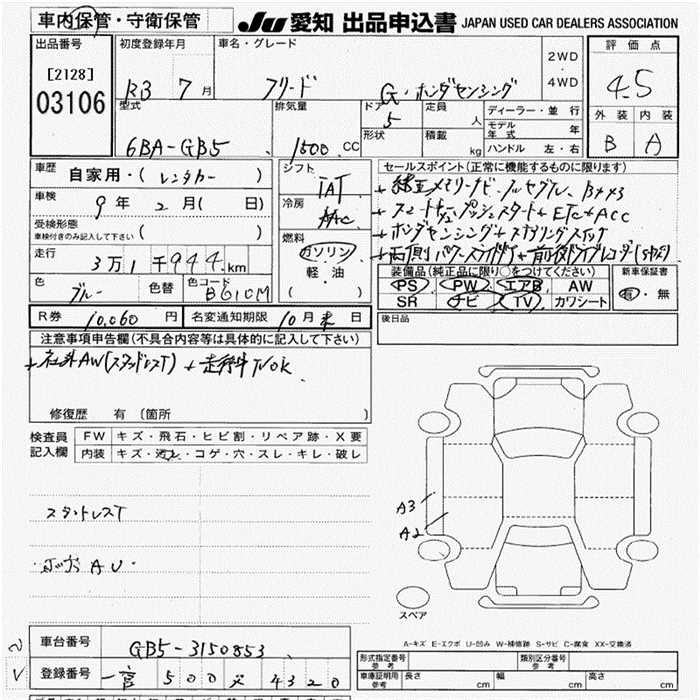 車内保管・守衛保管
JU 愛知 出品申込書 JAPAN USED CAR DEALERS ASSOCIATION
出品番号
[2128]
03106
初度登録年月
R3 7 月
車名・グレード
フリード G・ホンダセンシング
2WD
4WD
評価点
4.5
外装 内装
B A
型式
6BA-GB5
排気量
1500 cc
ドア
5
形状
定員
人
積載
kg
ディーラー・並行
モデル年式 年
ハンドル 左・右
車歴
自家用・(レンタカー)
車検
9 年 2 月( 日)
受検形態
車検付きのみ記入して下さい ( )
走行
3万1千944 km
色
ブルー
色替
色コード
B610M
シフト
IAT
冷房
AAC
燃料
ガソリン
軽油
( )
セールスポイント(正常に機能するものに限ります)
+純正メモリーナビ・フルセグTV、Bカメラ
+スマートキー プッシュスタート+ETC+ACC
+ホンダセンシング+ステアリングスイッチ
+両側パワースライド+前後ドライブレコーダー
装備品(純正品に限り○をつけてください)
PS PW エアB AW
SR ナビ TV カワシート
新車保証書
有・無
R券 10,060 円
名変通知期限 10 月 末 日
後日品
注意事項申告欄(不具合内容等は具体的に記入して下さい)
+社外AW(スタッドレスT) +走行中TVOK
修復歴 有 (箇所 )
検査員記入欄
FW キズ・飛石・ヒビ割・リペア跡・X要
内装 キズ・汚レ・コゲ・穴・スレ・キレ・破レ
スタットレスT
ホッポ AU
A3
A2
スペア
A-キズ E-エクボ U-凹み W-補修跡 S-サビ C-腐食 XX-交換済
車台番号 GB5-3150853
登録番号 一宮 500 4320
形式指定番号 参考
類別区分番号 参考
車庫証明用 参考 長さ cm 幅 cm 高さ cm